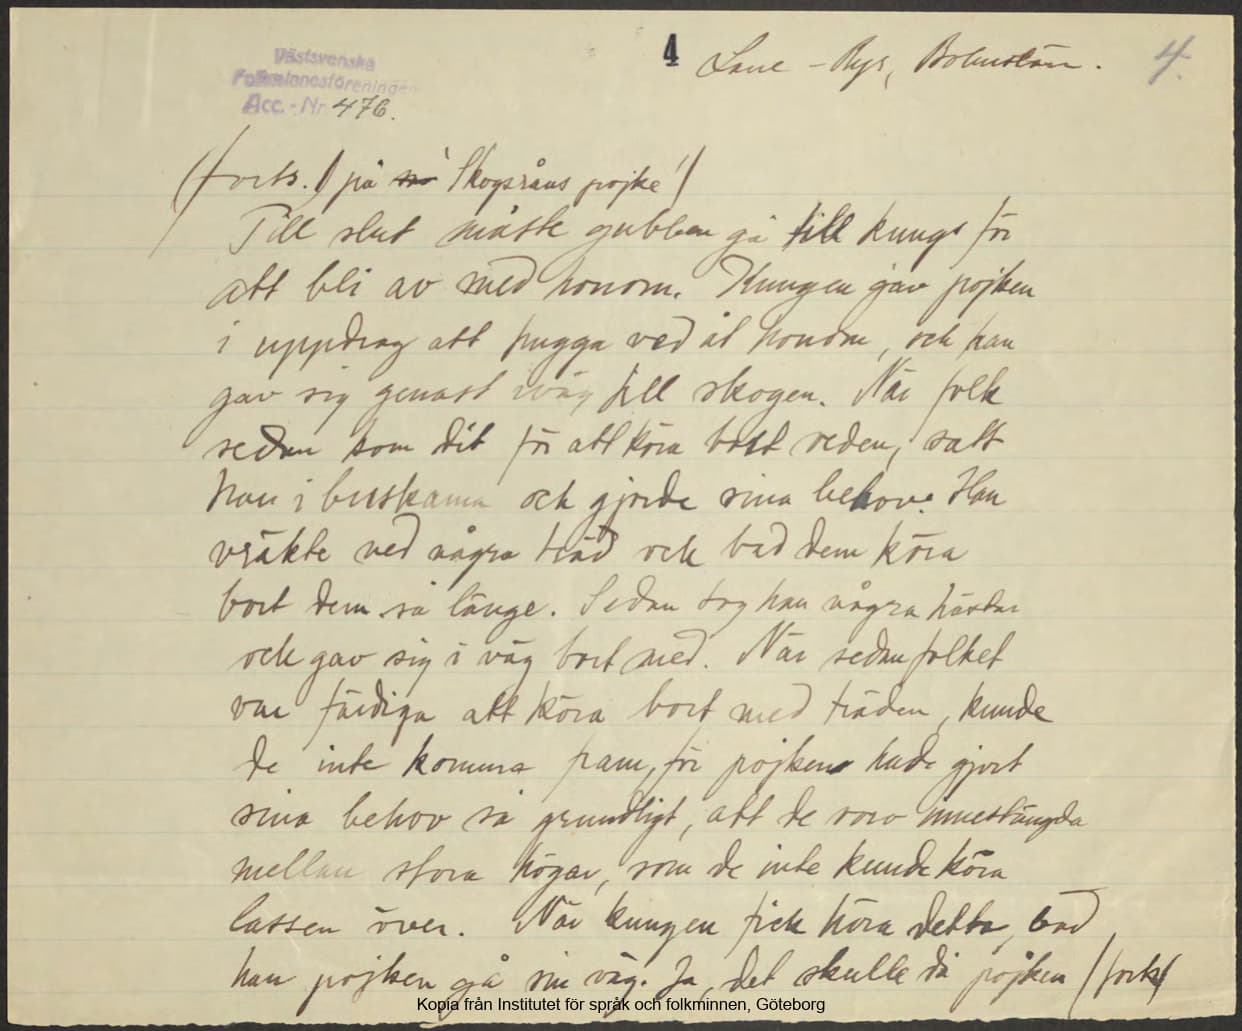 4 Lane-Ryr, Bohuslän. 4.
Västsvenska
Folkminnesföreningen
Acc.-Nr 476.
(forts.) på Skogsråns pojke)
Till slut måste gubben gå till kungs för
att bli av med honom. Kungen gav pojken
i uppdrag att hugga ved åt honom, och han
gav sig genast iväg till skogen. När folk
sedan kom dit för att köra bort veden, satt
han i buskarna och gjorde sina behov. Han
vräkte ned några träd och bad dem köra
bort dem så länge. Sedan tog han några hästar
och gav sig i väg bort med. När sedan folket
var färdiga att köra bort med träden, kunde
de inte komma fram, för pojken hade gjort
sina behov så grundligt, att de voro innestängda
mellan stora högar, som de inte kunde köra
lassen över. När kungen fick höra detta, bad
han pojken gå sin väg. Ja, det skulle då pojken (forts)
Kopia från Institutet för språk och folkminnen, Göteborg